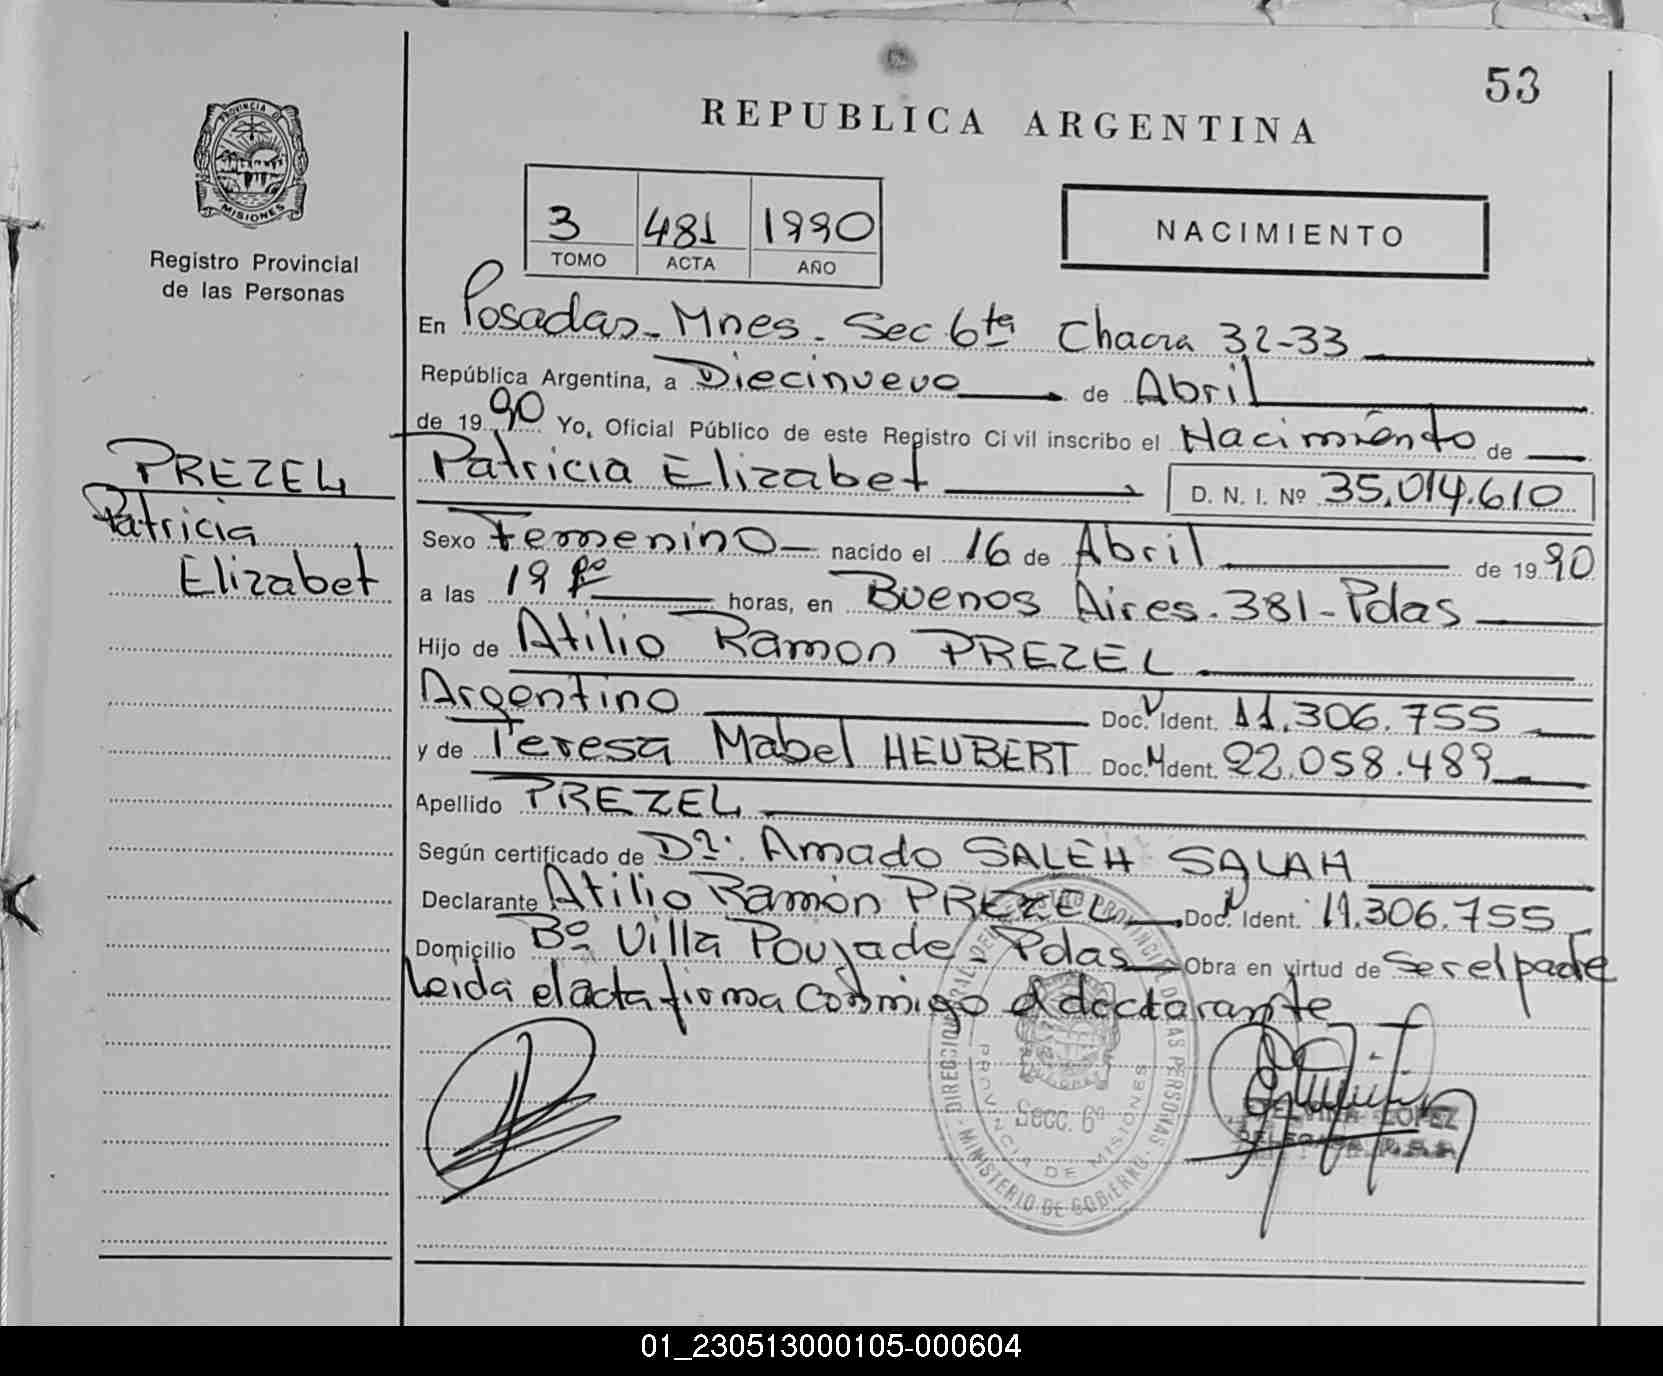 53
REPUBLICA ARGENTINA
PROVINCIA DE
MISIONES
Registro Provincial
de las Personas
3 481 1990
TOMO ACTA AÑO
NACIMIENTO
En Posadas - Mnes - Sec 6ta Chacra 32-33
República Argentina, a Diecinueve de Abril
de 1990 Yo, Oficial Público de este Registro Civil inscribo el Nacimiento de
PREZEL
Patricia
Elizabet
Patricia Elizabet D. N. I. Nº 35.014.610
Sexo Femenino nacido el 16 de Abril de 1990
a las 19 horas, en Buenos Aires - 381 - Pdas
Hijo de Atilio Ramon PREZEL
Argentino Doc. Ident. 11.306.755
y de Teresa Mabel HEUBERT Doc. Ident. 22.058.489
Apellido PREZEL
Según certificado de Dr. Amado SALEH SALAH
Declarante Atilio Ramón PREZEL Doc. Ident. 11.306.755
Domicilio Bº Villa Poujade - Pdas Obra en virtud de ser el padre
Leida el acta firma conmigo el declarante
MINISTERIO DE GOBIERNO
PROVINCIA DE MISIONES
Secc. 6ª
LOPEZ
01_230513000105-000604